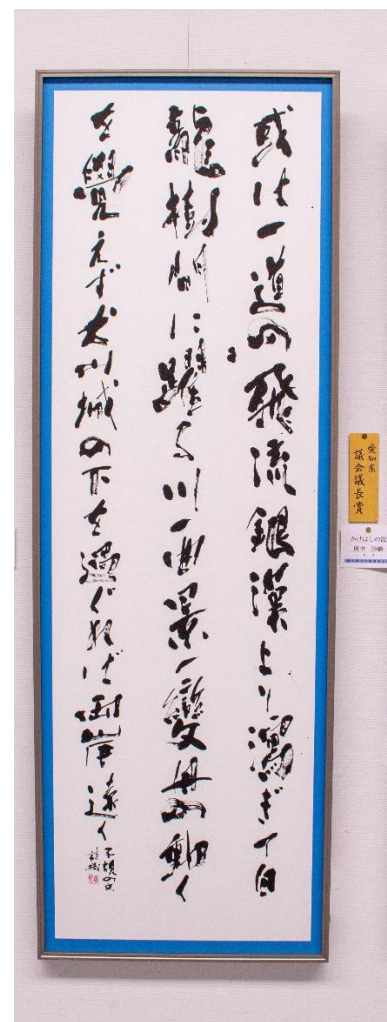 或は一道の飛流銀漢より瀉ぎて白
龍樹間に躍る川一曲景一變舟の動く
を覺えず犬山城の下を過ぐれば両岸遠く
子規の文
愛知県
議会議長賞
かけはしの記